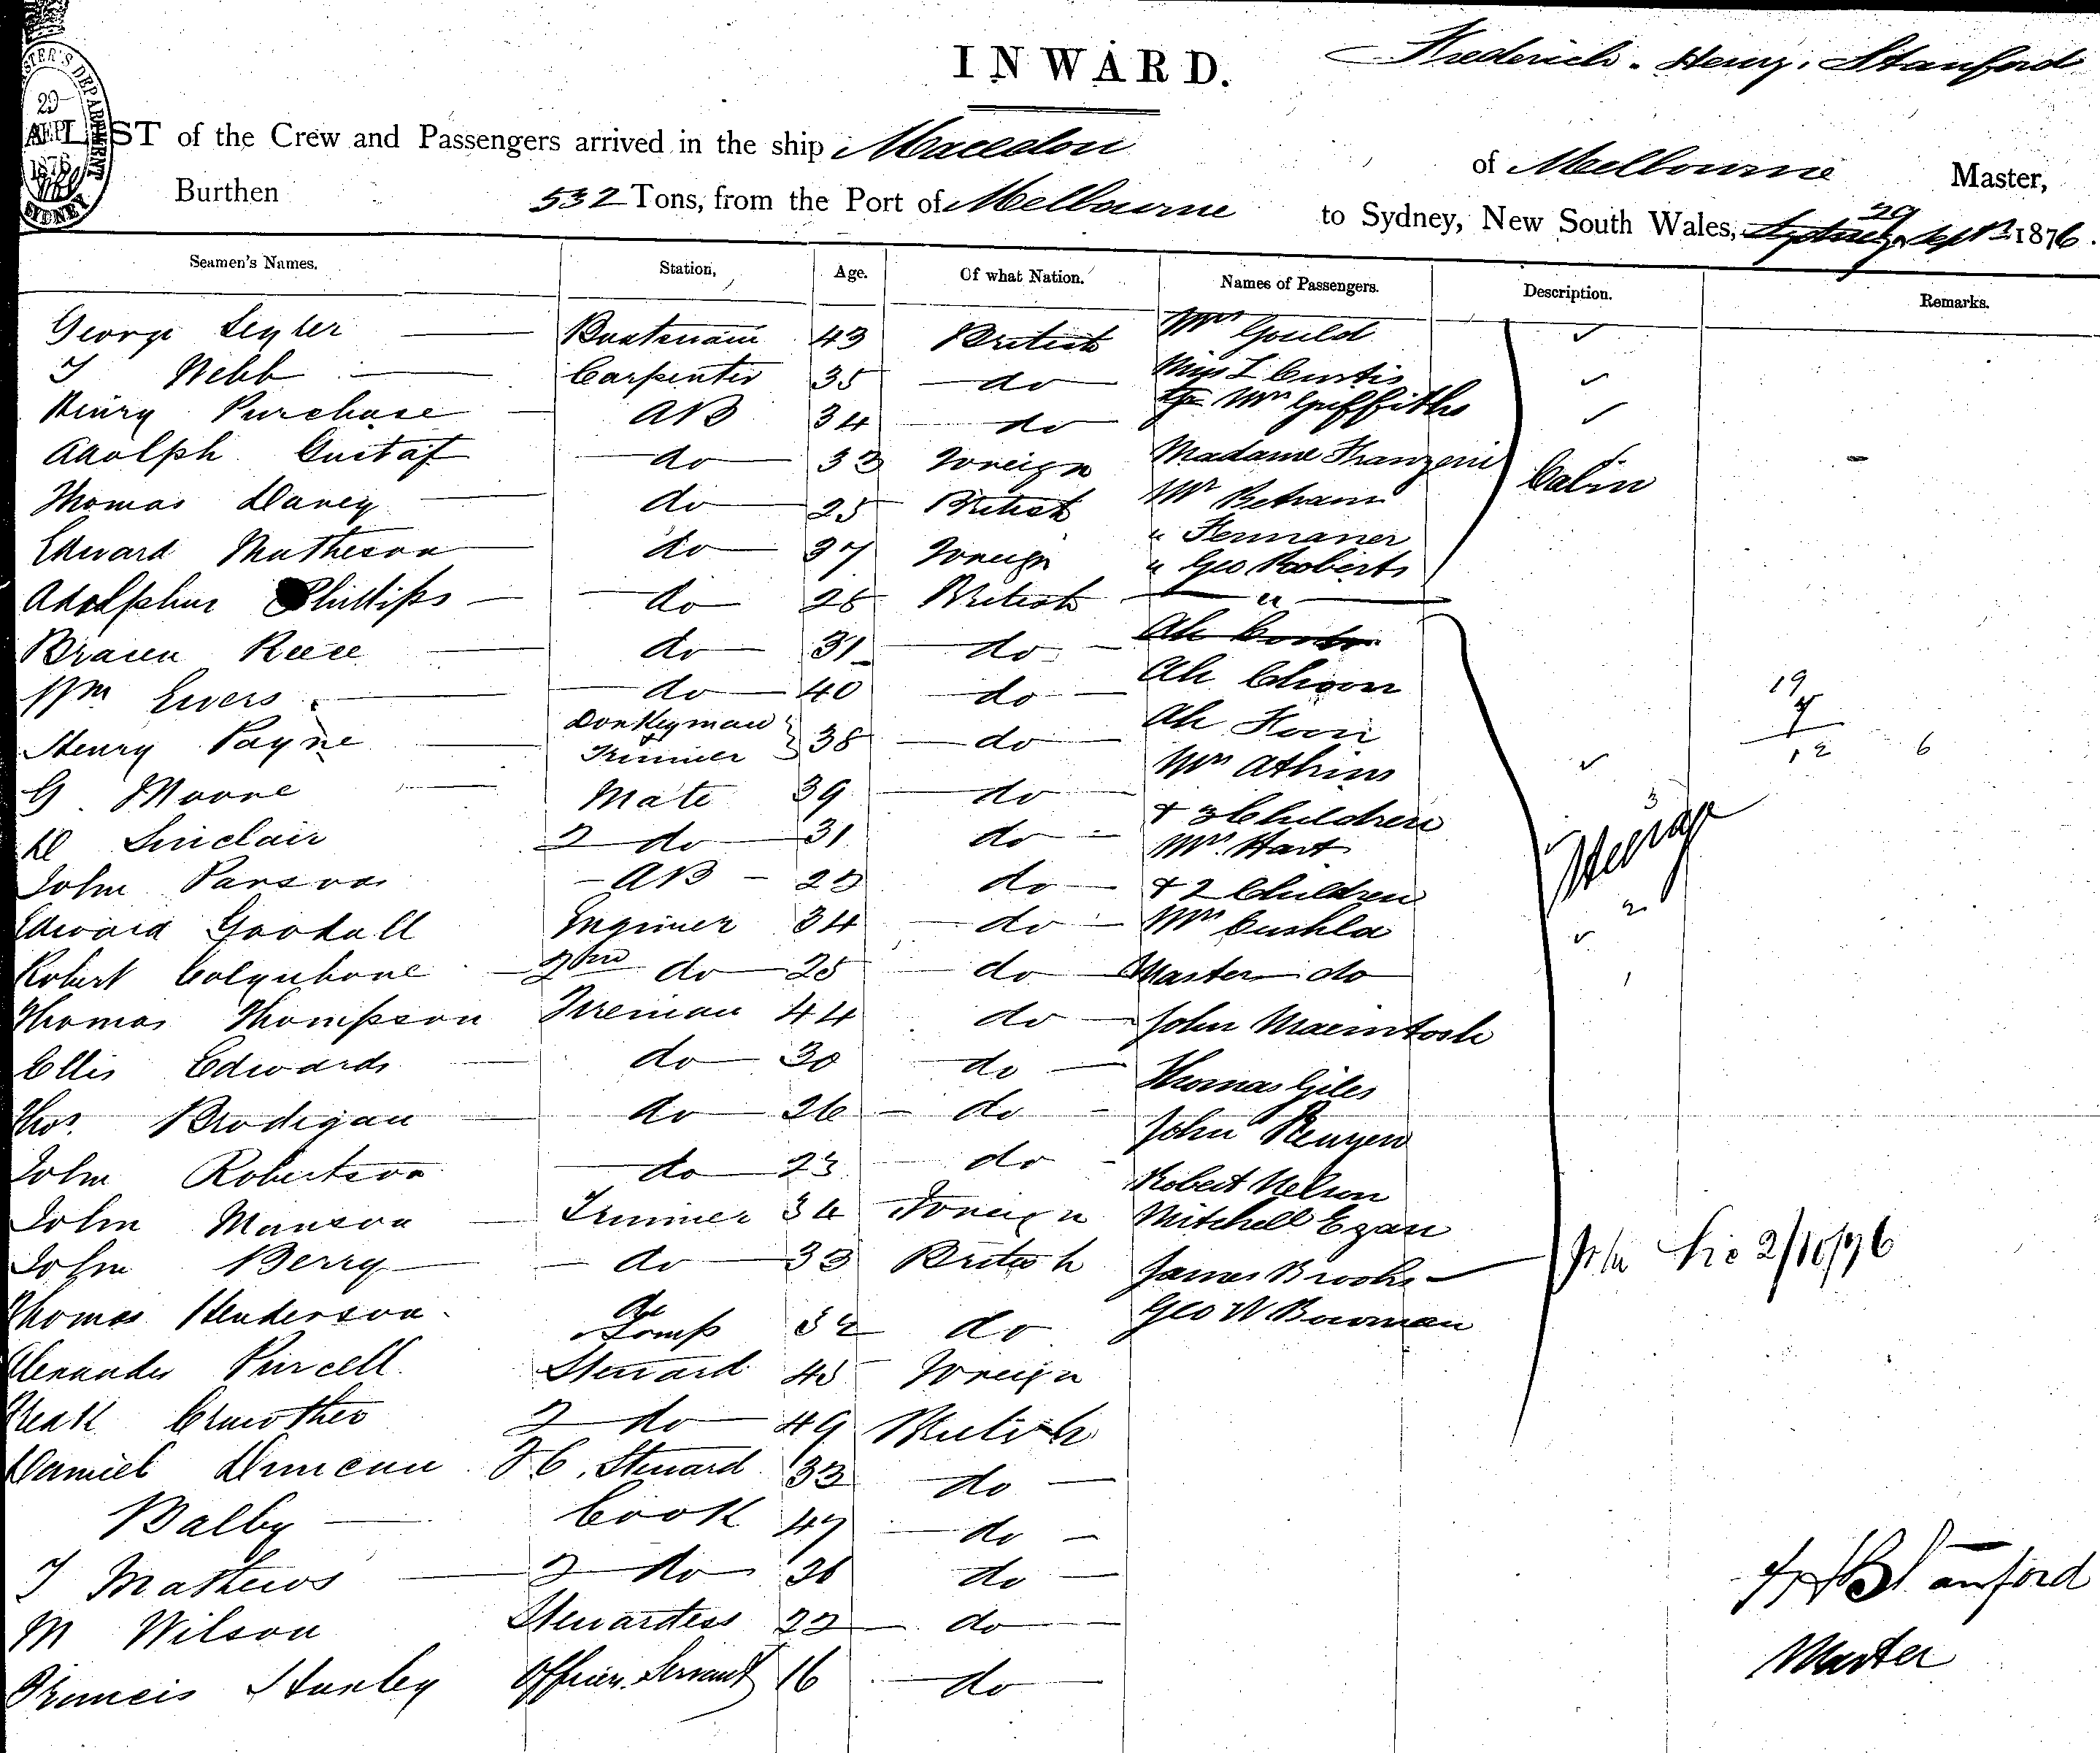 INWARD.
Frederick Henry Stanford
LIST of the Crew and Passengers arrived in the ship Macedon of Melbourne Master,
Burthen 532 Tons, from the Port of Melbourne to Sydney, New South Wales, 29 Sept 1876.
Seamen's Names. Station, Age. Of what Nation. Names of Passengers. Description. Remarks.
George 43 British Mrs Gould
Webb Carpenter 35 do Miss L Curtis
Henry Purchase AB 34 do Mrs Griffiths
Adolph Gustaf do 33 Foreign Madame Franzeni Cabin
Thomas Davey do 25 British Mr
Edward Matheson do 37 Foreign "
" Geo Roberts
Adolphus Phillips do 28 British "
Reece do 31 do Ah
Wm Evers do 40 do Ah Choon
Henry Payne Donkeyman & Trimmer 38 do Ah 19 7 12 6
Mrs Athins
G Moore Mate 39 do & 3 Children 3
D Sinclair 2 do 31 do Mrs Hart Steerage
John Parson AB 23 do & 2 Children 2
Edward Goodall Engineer 34 do Mrs Cushla
Robert Colquhone 2nd do 25 do Master do 1
Thomas Thompson Fireman 44 do John Macintosh
Ellis Edwards do 30 do Thomas Giles
Thos. Brodigan do 26 do John
John Robertson do 23 do Robert Nelson
John Manson Trimmer 34 Foreign Mitchell Egan
John Berry do 33 British James Brooks 2/10/76
Thomas Henderson do & Lamp 32 do Geo W Bowman
Alexander Purcell Steward 45 Foreign
Crowther 2 do 49 British
Daniel Duncan F C. Steward 33 do
Balby Cook 47 do
Mathews 2 do 26 do
M Wilson Stewardess 22 do
Francis Stanley Officers Servant 16 do
Stanford
Master